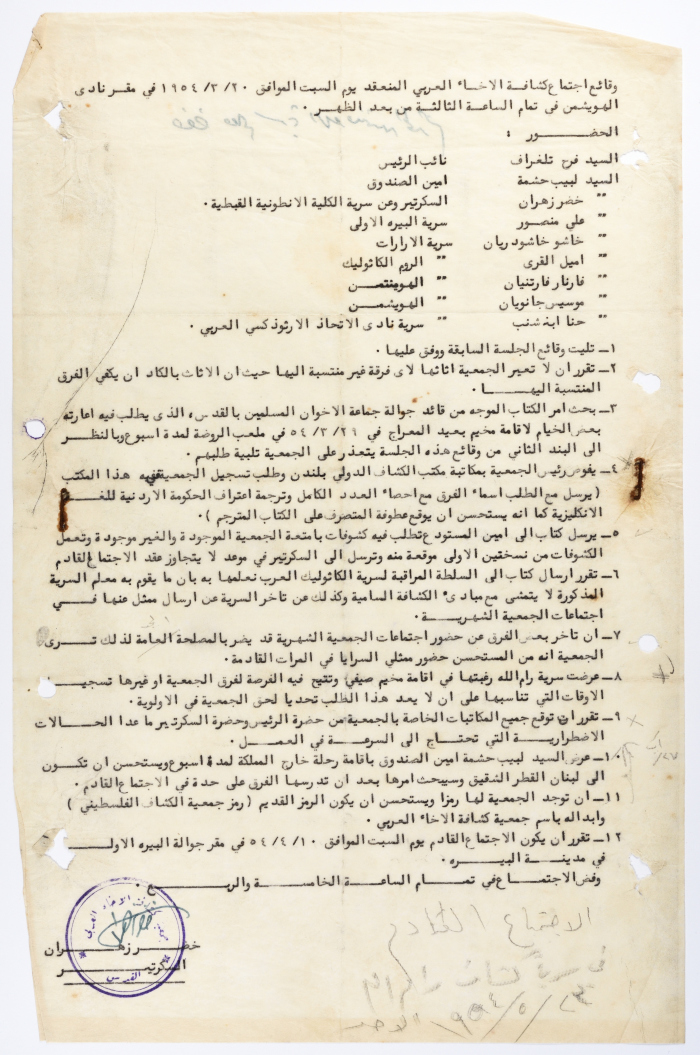 وقائع اجتماع كشافة الاخاء العربي المنعقد يوم السبت الموافق ٢٠ /٣ /١٩٥٤ في مقر نادى
الهويشمن في تمام الساعة الثالثة من بعد الظهر ٠
الحضـــــور :
السيد فرح تلغراف نائب الرئيس
السيد لبيب حشمة امين الصندوق
" خضر زهران السكرتير وعن سرية الكلية الانطونية القبطية ٠
" علي منصور " سرية البيره الاولى
" خاشو خاشودريان " سرية الارارات
" اميل القرى " الروم الكاثوليك
" فارنار فارتنيان " الهومنتمن
" موسيس جانويان " الهويشمن
" حنا ابنه شنب " سرية نادى الاتحاد الارثوذكسي العربي ٠
١ــ تليت وقائع الجلسة السابقة ووفق عليها ٠
٢ــ تقرر ان لا تعير الجمعية اثاثها لاى فرقة غير منتسبة اليها حيث ان الاثاث بالكاد ان يكفي الفرق
المنتسبة اليهـــــا ٠
٣ــ بحث امر الكتاب الموجه من قائد جوالة جماعة الاخوان المسلمين بالقدس الذى يطلب فيه اعارته
بعض الخيام لاقامة مخيم بعيد المعراج في ٢٩ /٣ /٥٤ في ملعب الروضة لمدة اسبوع وبالنظر
الى البند الثاني من وقائع هذه الجلسة يتعذر على الجمعية تلبية طلبهم ٠
٤ــ يفوض رئيس الجمعية بمكاتبة مكتب الكشاف الدولى بلندن وطلب تسجيل الجمعية في هذا المكتب
( يرسل مع الطلب اسماء الفرق مع احصاء العدد الكامل وترجمة اعتراف الحكومة الاردنية للغـــة
الانكليزية كما انه يستحسن ان يوقع عطوفة المتصرف على الكتاب المترجم ) ٠
٥ــ يرسل كتاب الى امين المستودع تطلب فيه كشوفات بامتعة الجمعية الموجودة والغير موجودة وتعمل
الكشوفات من نسختين الاولى موقعة منه وترسل الى السكرتير في موعد لا يتجاوز عقد الاجتماع القادم
٦ــ تقرر ارسال كتاب الى السلطة المراقبة لسرية الكاثوليك العرب نعلمها به بان ما يقوم به معلم السرية
المذكورة لا يتمشى مع مبادئ الكشافة السامية وكذلك عن تاخر السرية عن ارسال ممثل عنها فـــي
اجتماعات الجمعية الشهريـــة ٠
٧ــ ان تاخر بعض الفرق عن حضور اجتماعات الجمعية الشهرية قد يضر بالمصلحة العامة لذلك تـــرى
الجمعية انه من المستحسن حضور ممثلي السرايا في المرات القادمة ٠
٨ــ عرضت سرية رام الله رغبتها في اقامة مخيم صيفي وتتيح فيه الفرصة لفرق الجمعية او غيرها تسجيـــل
الاوقات التي تناسبها على ان لا يعد هذا الطلب تحديا لحق الجمعية في الاولوية ٠
٩ــ تقرر ان توقع جميع المكاتبات الخاصة بالجمعية من حضرة الرئيس وحضرة السكرتير ما عدا الحـــالات
الاضطراريـــة التي تحتاج الى السرعة في العمـــل ٠
١٠ــ عرض السيد لبيب حشمة امين الصندوق باقامة رحلة خارج المملكة لمدة اسبوع ويستحسن ان تكون
الى لبنان القطر الشقيق وسيبحث امرها بعد ان تدرسها الفرق على حدة في الاجتماع القادم ٠
١١ــ ان توجد الجمعية لها رمزا ويستحسن ان يكون الرمز القديم ( رمز جمعية الكشاف الفلسطيني )
وابداله باسم جمعية كشافة الاخاء العربي ٠
١٢ــ تقرر ان يكون الاجتماع القادم يوم السبت الموافق ١٠ /٤ /٥٤ في مقر جوالة البيره الاولـــى
في مدينـــة البيـــره ٠
وفض الاجتماع في تمـــام الساعـــة الخامســـة والربـــع ٠
خضـــر زهـــران
السكرتيـــر
القدس
الاجتماع القادم
في سرية كشافة رام الله
الاحد ٢٣ /٥ /١٩٥٤